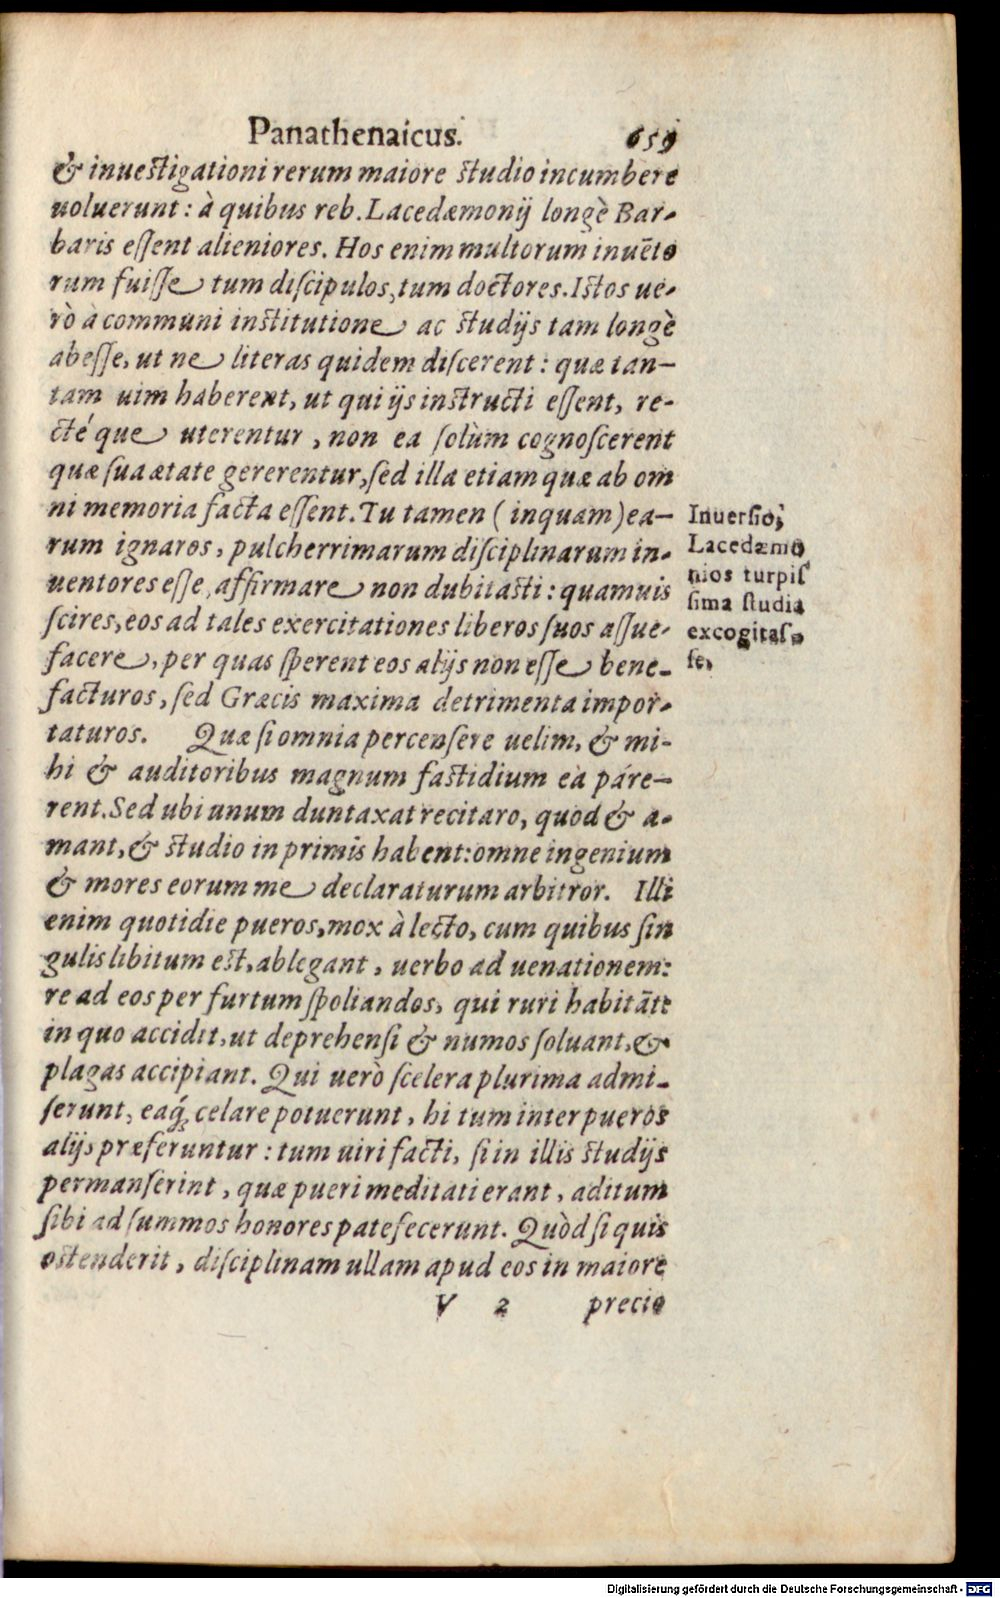 Panathenaicus. 659
& inuestigationi rerum maiore studio incumbere
uoluerunt: à quibus reb. Lacedæmonij longè Bar-
baris essent alieniores. Hos enim multorum inuēto
rum fuisse tum discipulos, tum doctores. Istos ue-
rò à communi institutione ac studijs tam longè
abesse, ut ne literas quidem discerent: quæ tan-
tam uim haberent, ut qui ijs instructi essent, re-
ctéque uterentur, non ea solùm cognoscerent
quæ sua ætate gererentur, sed illa etiam quæ ab om
ni memoria facta essent. Tu tamen (inquam) ea-
rum ignaros, pulcherrimarum disciplinarum in-
uentores esse, affirmare non dubitasti: quamuis
scires, eos ad tales exercitationes liberos suos assue-
facere, per quas sperent eos alijs non esse bene-
facturos, sed Græcis maxima detrimenta impor-
taturos. Quæ si omnia percensere uelim, & mi-
hi & auditoribus magnum fastidium ea páre-
rent. Sed ubi unum duntaxat recitaro, quod & a-
mant, & studio in primis habent: omne ingenium
& mores eorum me declaraturum arbitror. Illi
enim quotidie pueros, mox à lecto, cum quibus sin
gulis libitum est, ablegant, uerbo ad uenationem:
re ad eos per furtum spoliandos, qui ruri habitāt:
in quo accidit, ut deprehensi & numos soluant, &
plagas accipiant. Qui uerò scelera plurima admi-
serunt, eaq́; celare potuerunt, hi tum inter pueros
alijs præferuntur: tum uiri facti, si in illis studijs
permanserint, quæ pueri meditati erant, aditum
sibi ad summos honores patefecerunt. Quòd si quis
ostenderit, disciplinam ullam apud eos in maiore
V 2 precio
Inuersio,
Lacedæmo
nios turpis
sima studia
excogitas-
se.
Digitalisierung gefördert durch die Deutsche Forschungsgemeinschaft - DFG